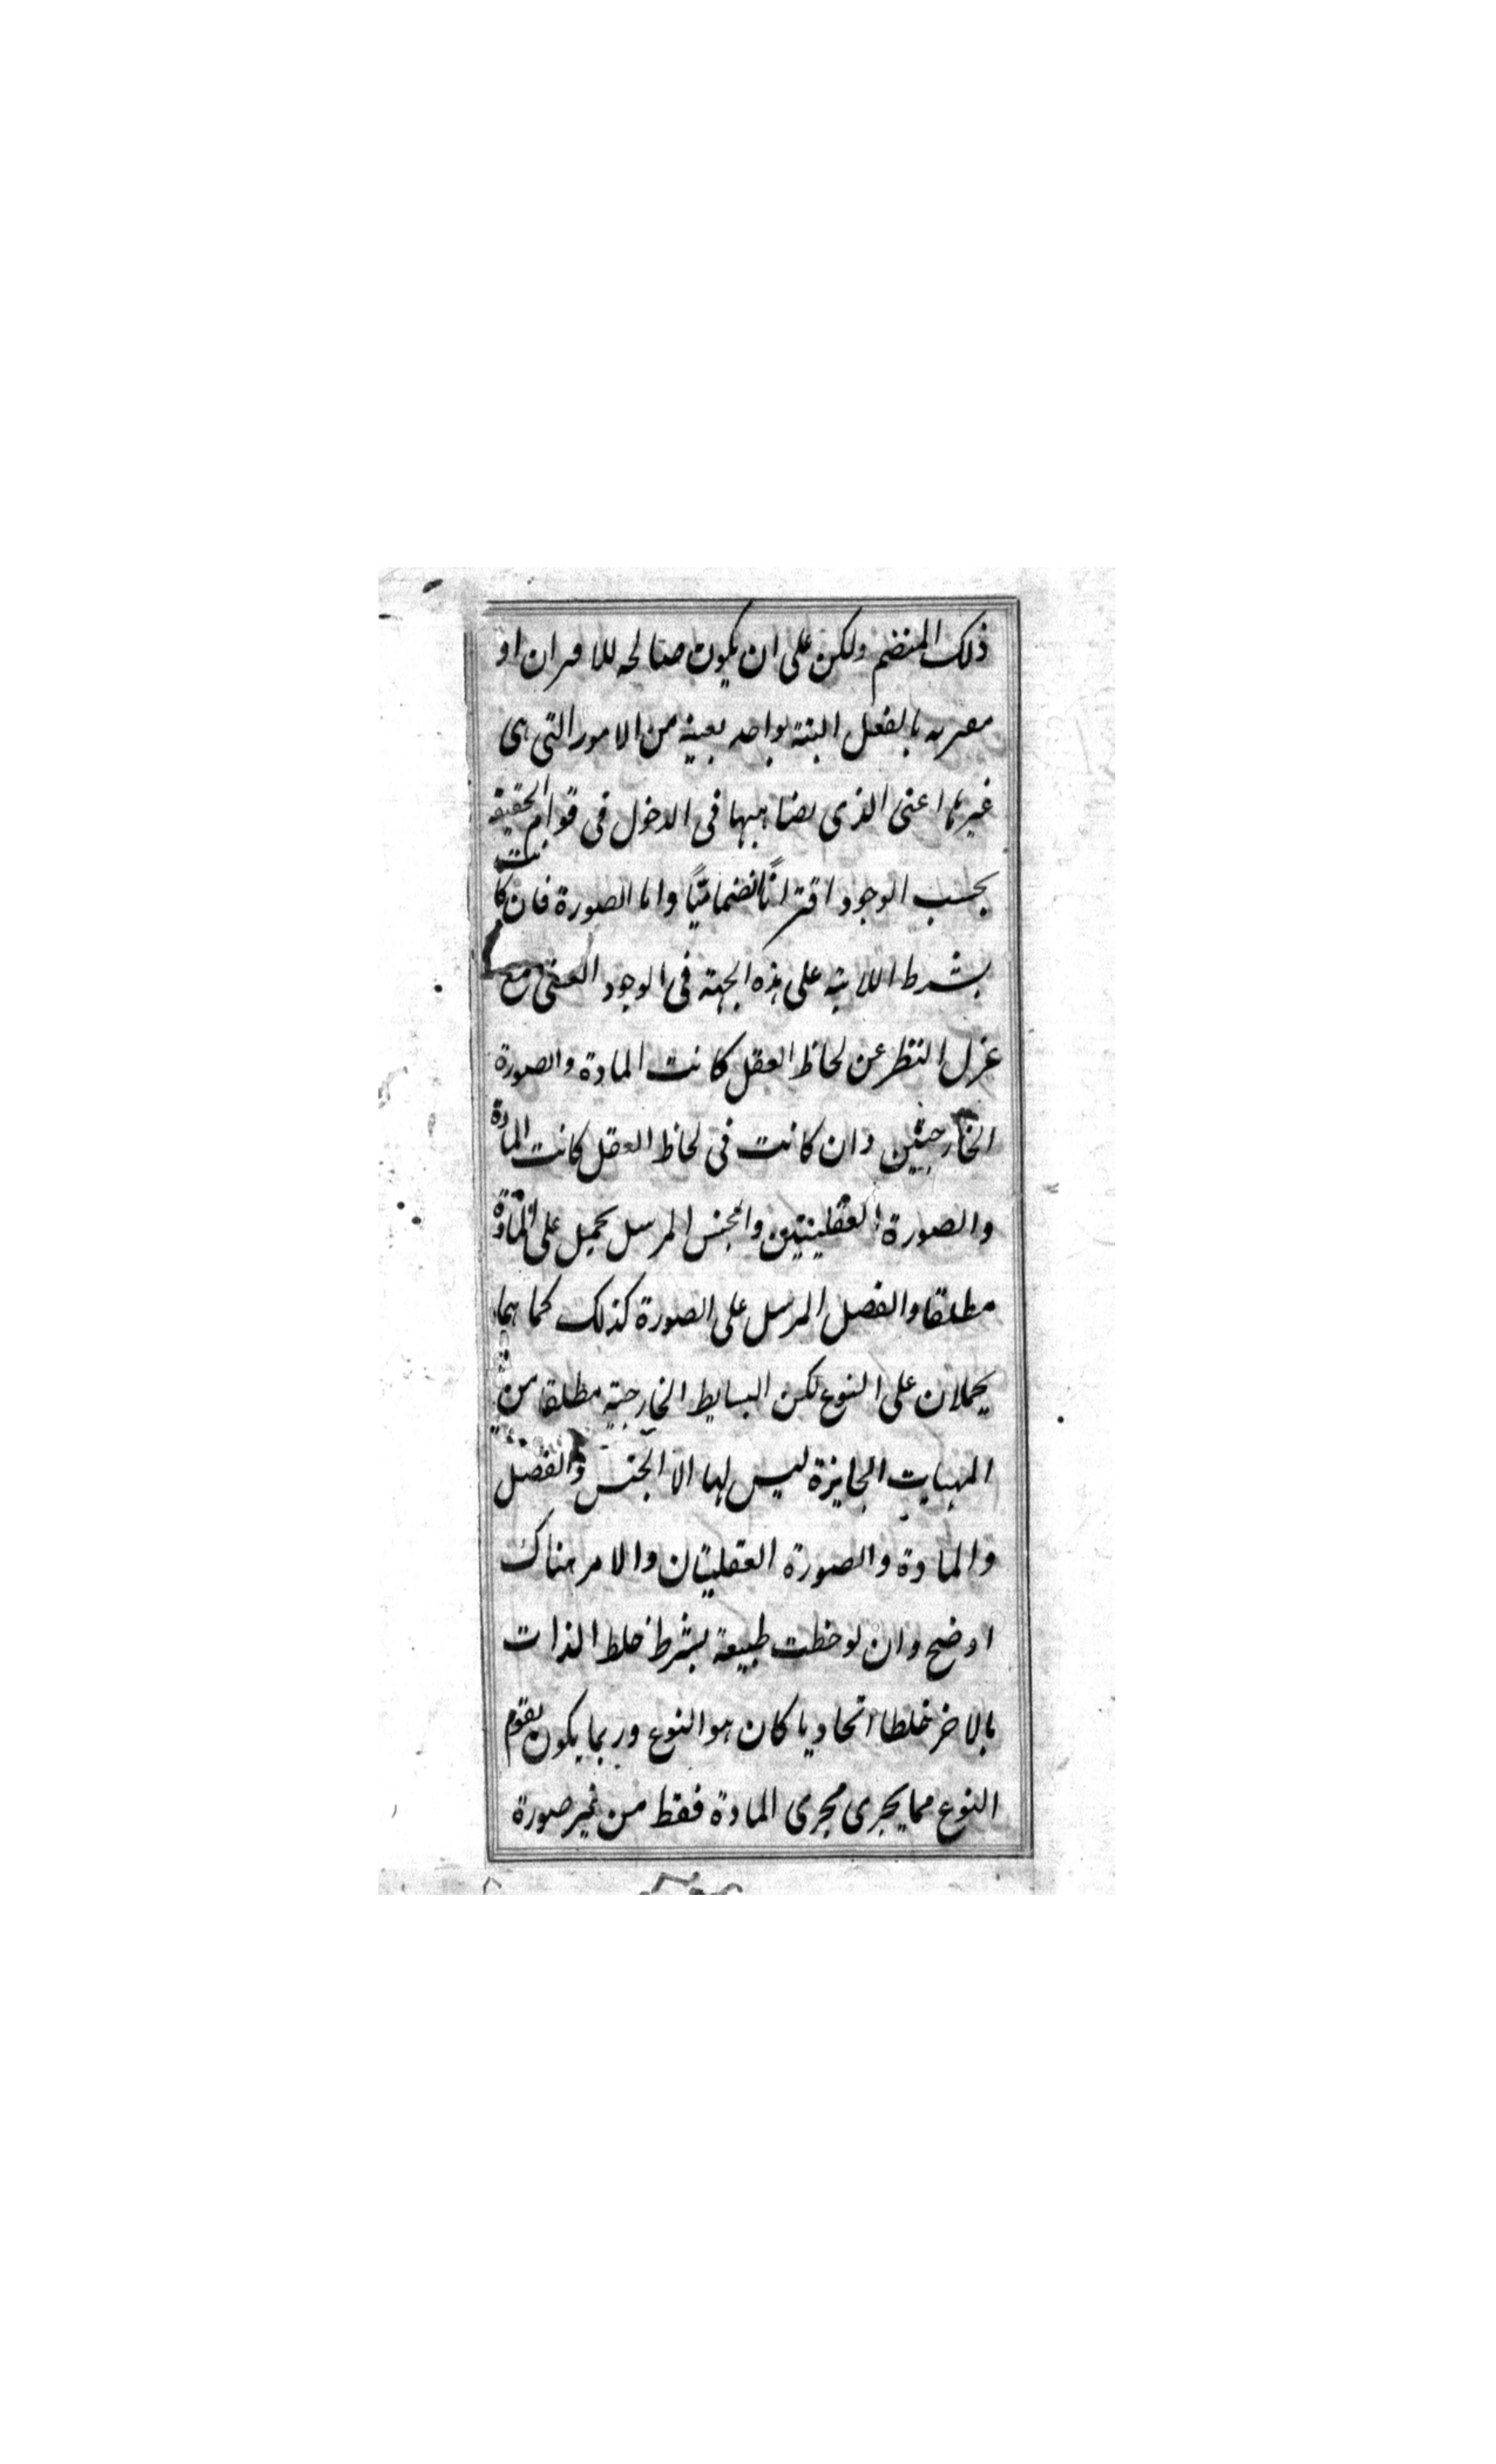 ذلك المنضم ولكن على ان يكون صالحه للاقتران او
مقترنه بالفعل البتة بواحد بعينه من الامور التى هى
غيرها اعنى الذى يضاهيها فى الدخول فى قوام الحقيقة
بحسب الوجود اقترانًا انضماميًا واما الصورة فان كانت
بشرط اللائية على هذه الجهة فى الوجود العينى مع
عزل النظر عن لحاظ العقل كانت المادة والصورة
الخارجيتين وان كانت فى لحاظ العقل كانت المادة
والصورة العقليتين والجنس المرسل يحمل على المادة
مطلقا والفصل المرسل على الصورة كذلك كما هما
يحملان على النوع لكن البسايط الخارجية مطلقا من
المهيات الجايزة ليس لها الا الجنس والفصل
والمادة والصورة العقليتان والامر هناك
اوضح وان لوحظت طبيعة بشرط خلط الذات
بالاخر خلطا اتحاديا كان هو النوع وربما يكون يقوم
النوع مما يجرى مجرى المادة فقط من غير صورة